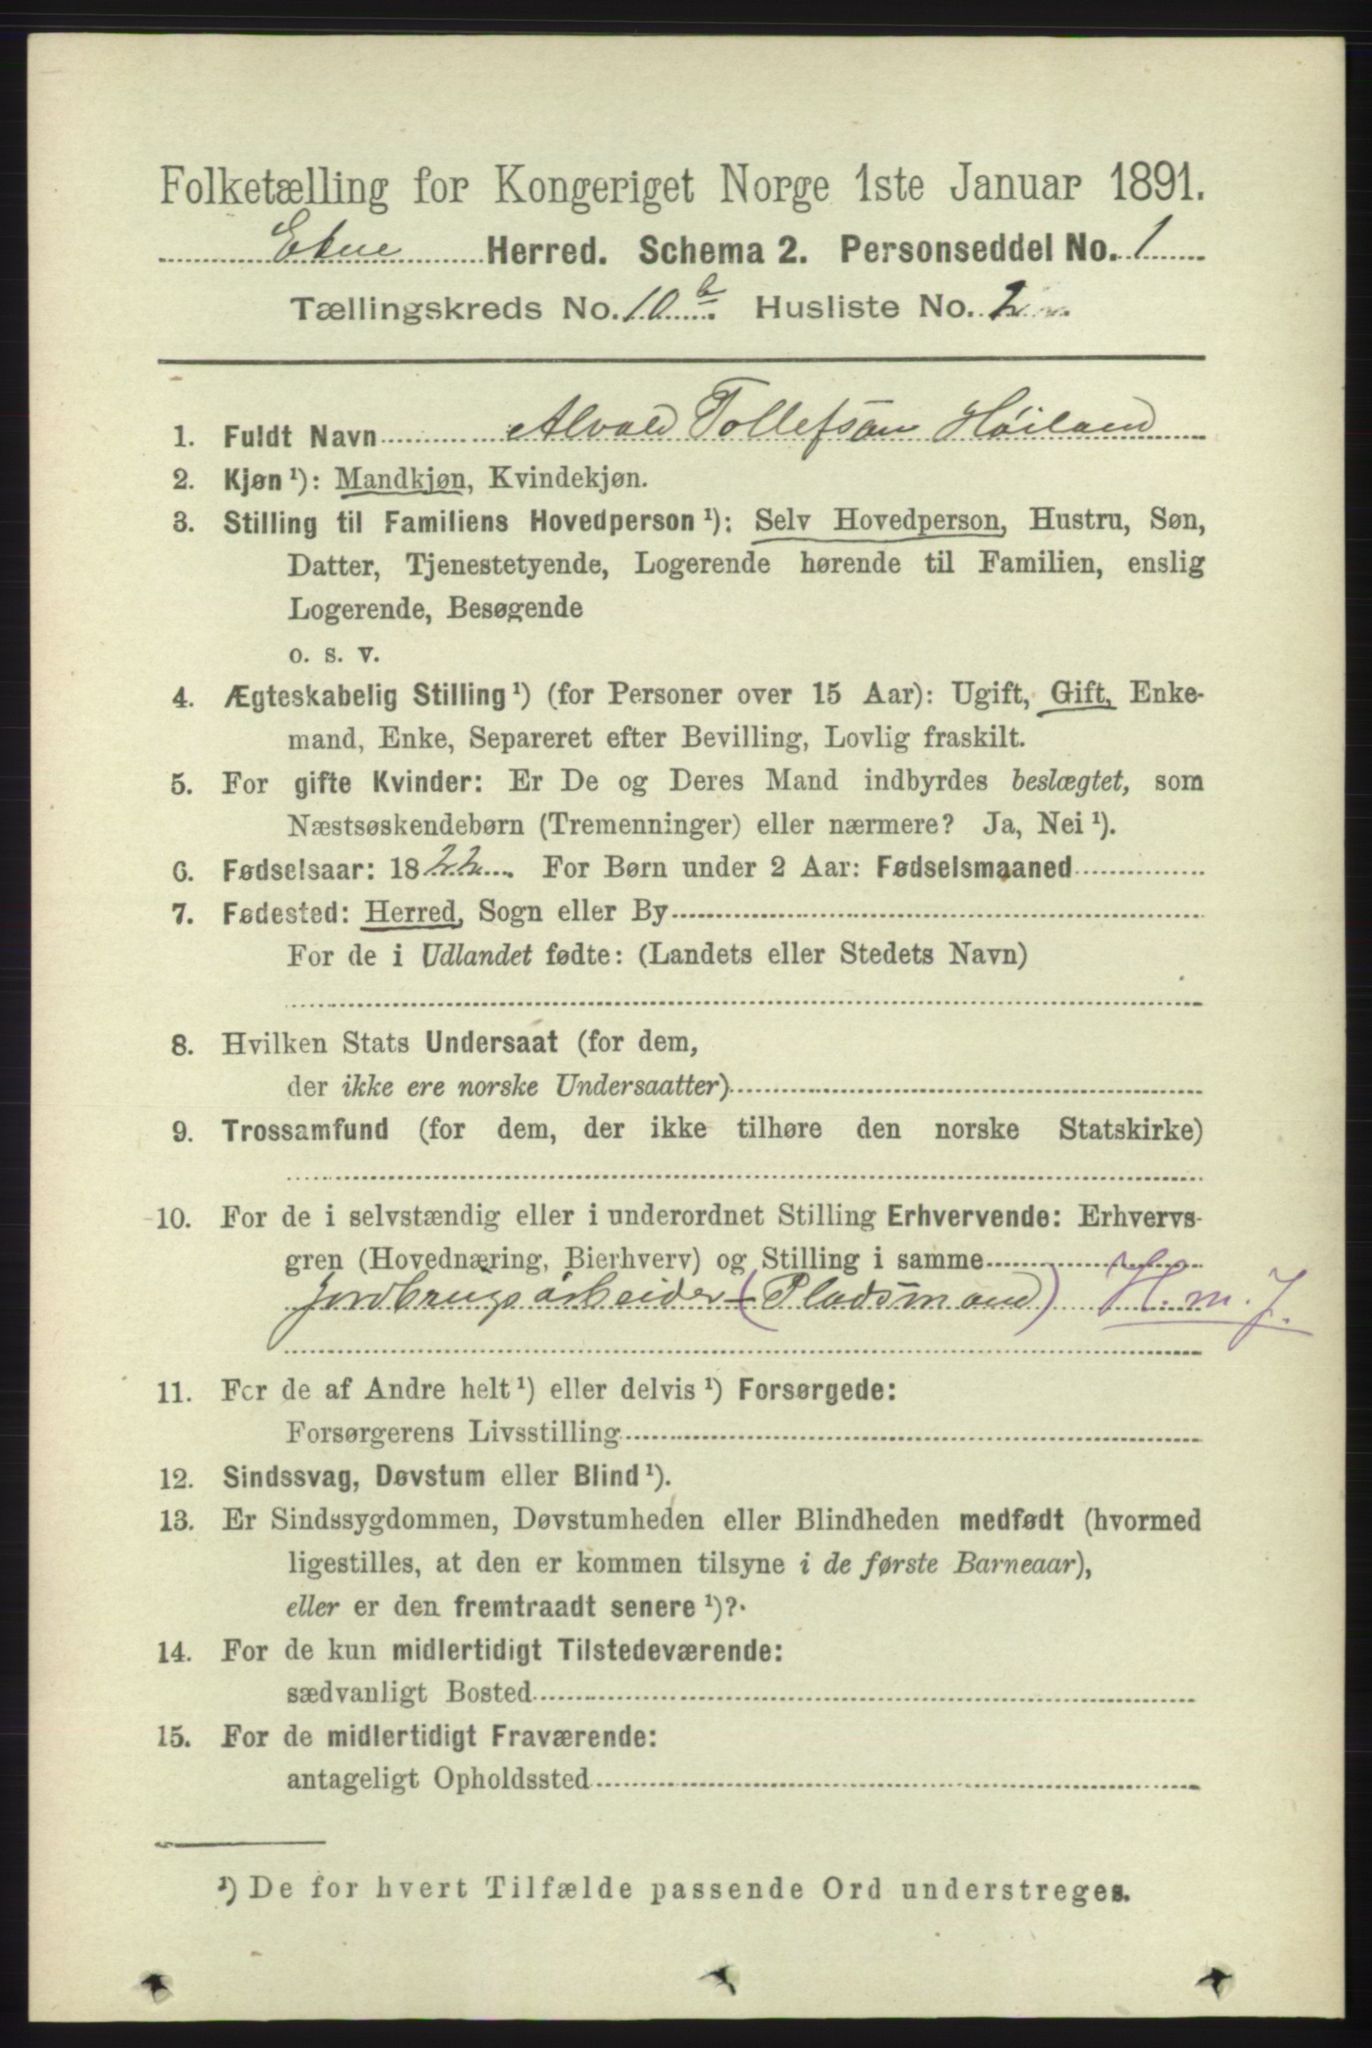 Folketælling for Kongeriget Norge 1ste Januar 1891.
Etne Herred. Schema 2. Personseddel No. 1
Tællingskreds No. 10 b. Husliste No. 2
1. Fuldt Navn Alvald Tollefson Høiland
2. Kjøn ¹): Mandkjøn, Kvindekjøn.
3. Stilling til Familiens Hovedperson ¹): Selv Hovedperson, Hustru, Søn,
Datter, Tjenestetyende, Logerende hørende til Familien, enslig
Logerende, Besøgende
o. s. v.
4. Ægteskabelig Stilling ¹) (for Personer over 15 Aar): Ugift, Gift, Enke-
mand, Enke, Separeret efter Bevilling, Lovlig fraskilt.
5. For gifte Kvinder: Er De og Deres Mand indbyrdes beslægtet, som
Næstsøskendebørn (Tremenninger) eller nærmere? Ja, Nei ¹).
6. Fødselsaar: 1822. For Børn under 2 Aar: Fødselsmaaned
7. Fødested: Herred, Sogn eller By
For de i Udlandet fødte: (Landets eller Stedets Navn)
8. Hvilken Stats Undersaat (for dem,
der ikke ere norske Undersaatter)
9. Trossamfund (for dem, der ikke tilhøre den norske Statskirke)
10. For de i selvstændig eller i underordnet Stilling Erhvervende: Erhvervs-
gren (Hovednæring, Bierhverv) og Stilling i samme
Jordbrugsarbeider (Pladsmand) H. m. J.
11. For de af Andre helt ¹) eller delvis ¹) Forsørgede:
Forsørgerens Livsstilling
12. Sindssvag, Døvstum eller Blind ¹).
13. Er Sindssygdommen, Døvstumheden eller Blindheden medfødt (hvormed
ligestilles, at den er kommen tilsyne i de første Barneaar),
eller er den fremtraadt senere ¹)?
14. For de kun midlertidigt Tilstedeværende:
sædvanligt Bosted
15. For de midlertidigt Fraværende:
antageligt Opholdssted
¹) De for hvert Tilfælde passende Ord understreges.